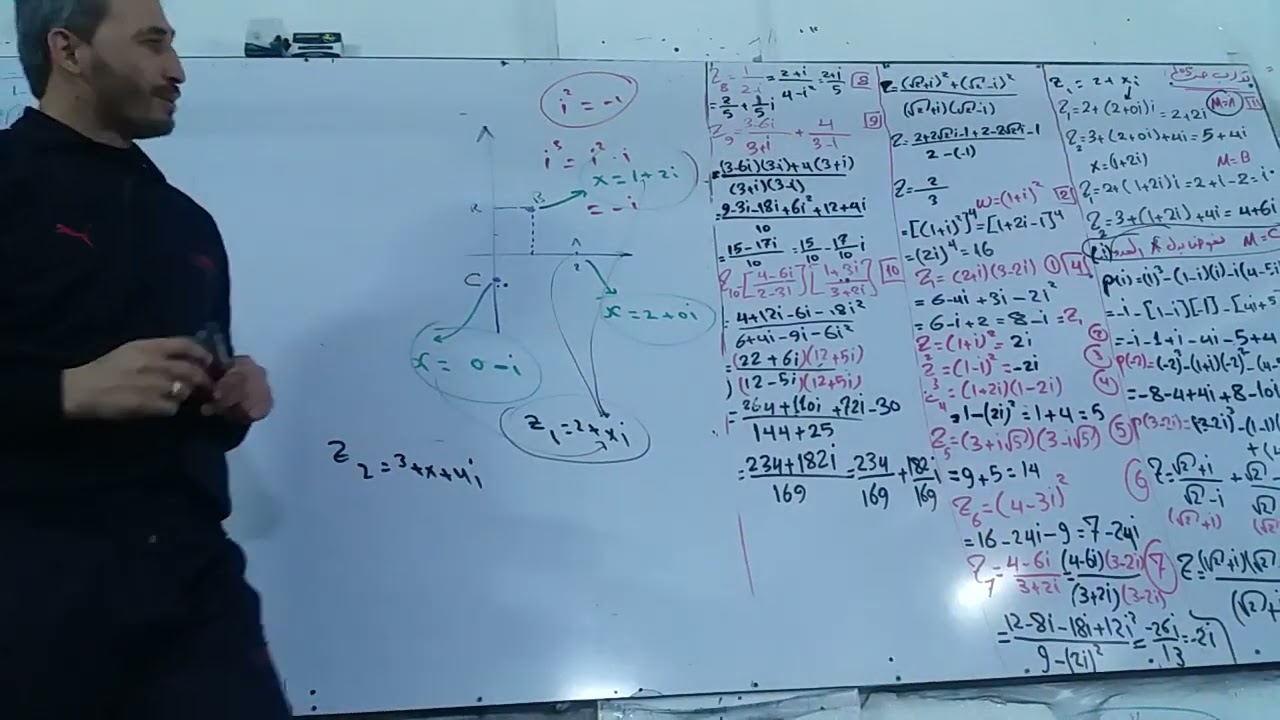 i² = -1
i³ = i² · i
= -i
x = 1+2i
B
A
2
C
x = 2+0i
x = 0-i
Z₁=2+xi
Z₂=3+x+4i
Z₈=1/(2-i)=(2+i)/(4-i²)=(2+i)/5 [8]
=2/5+1/5 i
Z₉=(3-6i)/(3+i)+4/(3-i) [9]
=((3-6i)(3-i)+4(3+i))/((3+i)(3-i))
=(9-3i-18i+6i²+12+4i)/10
=(15-17i)/10=15/10-17/10 i
Z₁₀=[(4-6i)/(2-3i)][(1+3i)/(3+2i)] [10]
=(4+12i-6i-18i²)/(6+4i-9i-6i²)
=(22+6i)(12+5i)/(12-5i)(12+5i)
=(264+110i+72i-30)/(144+25)
=(234+182i)/169=234/169+182/169 i
Z=((√2+i)²+(√2-i)²)/((√2+i)(√2-i))
Z=(2+2√2i-1+2-2√2i-1)/(2-(-1))
Z=2/3
w=(1+i)² [2]
=[(1+i)²]⁴=[1+2i-1]⁴
=(2i)⁴=16
Z₁=(2+i)(3-2i) ① [4]
=6-4i+3i-2i²
=6-i+2=8-i=Z₁
Z₂=(1+i)²=2i ②
Z₃=(1-i)²=-2i ③
Z₄=(1+2i)(1-2i) ④
=1-(2i)²=1+4=5
Z₅=(3+i√5)(3-i√5) ⑤
=9+5=14
Z₆=(4-3i)²
=16-24i-9=7-24i
Z₇=(4-6i)/(3+2i)=(4-6i)(3-2i)/(3+2i)(3-2i) ⑦
=(12-8i-18i+12i²)/(9-(2i)²)=-26i/13=-2i
Z₁=2+xi
M=A [1]
Z₁=2+(2+0i)i=2+2i
Z₂=3+(2+0i)+4i=5+4i
x=(1+2i) M=B
Z₁=2+(1+2i)i=2+i-2=i
Z₂=3+(1+2i)+4i=4+6i
M=C
p(i)=(i)³-(1-i)(i)-i(4-5i
=-i-[1-i][-1]-[4i+5
=-i-1+i-4i-5+4
p(-2)=(-2)³-(1+i)(-2)²-(4-
=-8-4+4i+8-10i
p(3-2i)=(3-2i)³-(1-i)(
⑥ Z=(√2+i)/(√2-i)+√2-
(√2+i) (√2
Z=(√2+i)(√2
(√2+i